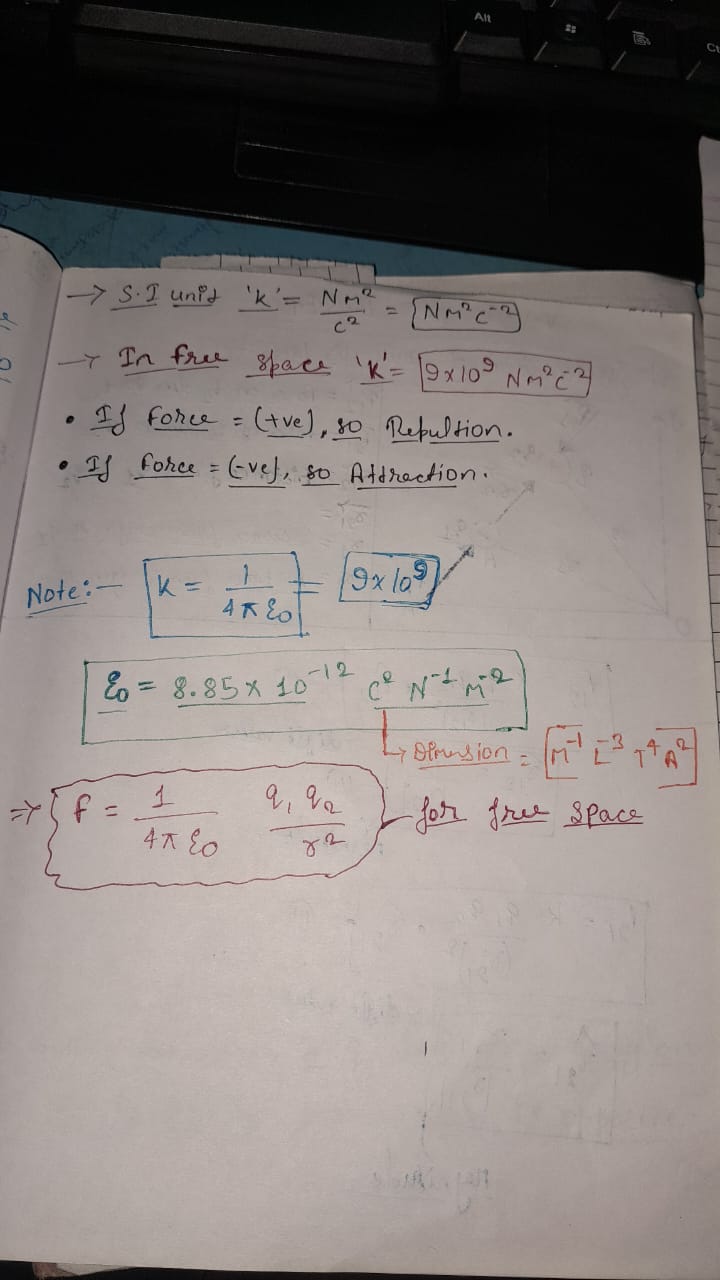 Alt
→ S.I unit 'k' = Nm²/c² = Nm²c⁻²
→ In free space 'k' = 9x10⁹ Nm²c⁻²
• If force = (+ve), so Repulsion.
• If force = (-ve), so Attraction.
Note:- k = 1/4πε₀ = 9x10⁹
ε₀ = 8.85 x 10⁻¹² c² N⁻¹ m⁻²
↳ Dimension = [M⁻¹ L⁻³ T⁴ A²]
⇒ f = 1/4πε₀ q₁q₂/r² for free space